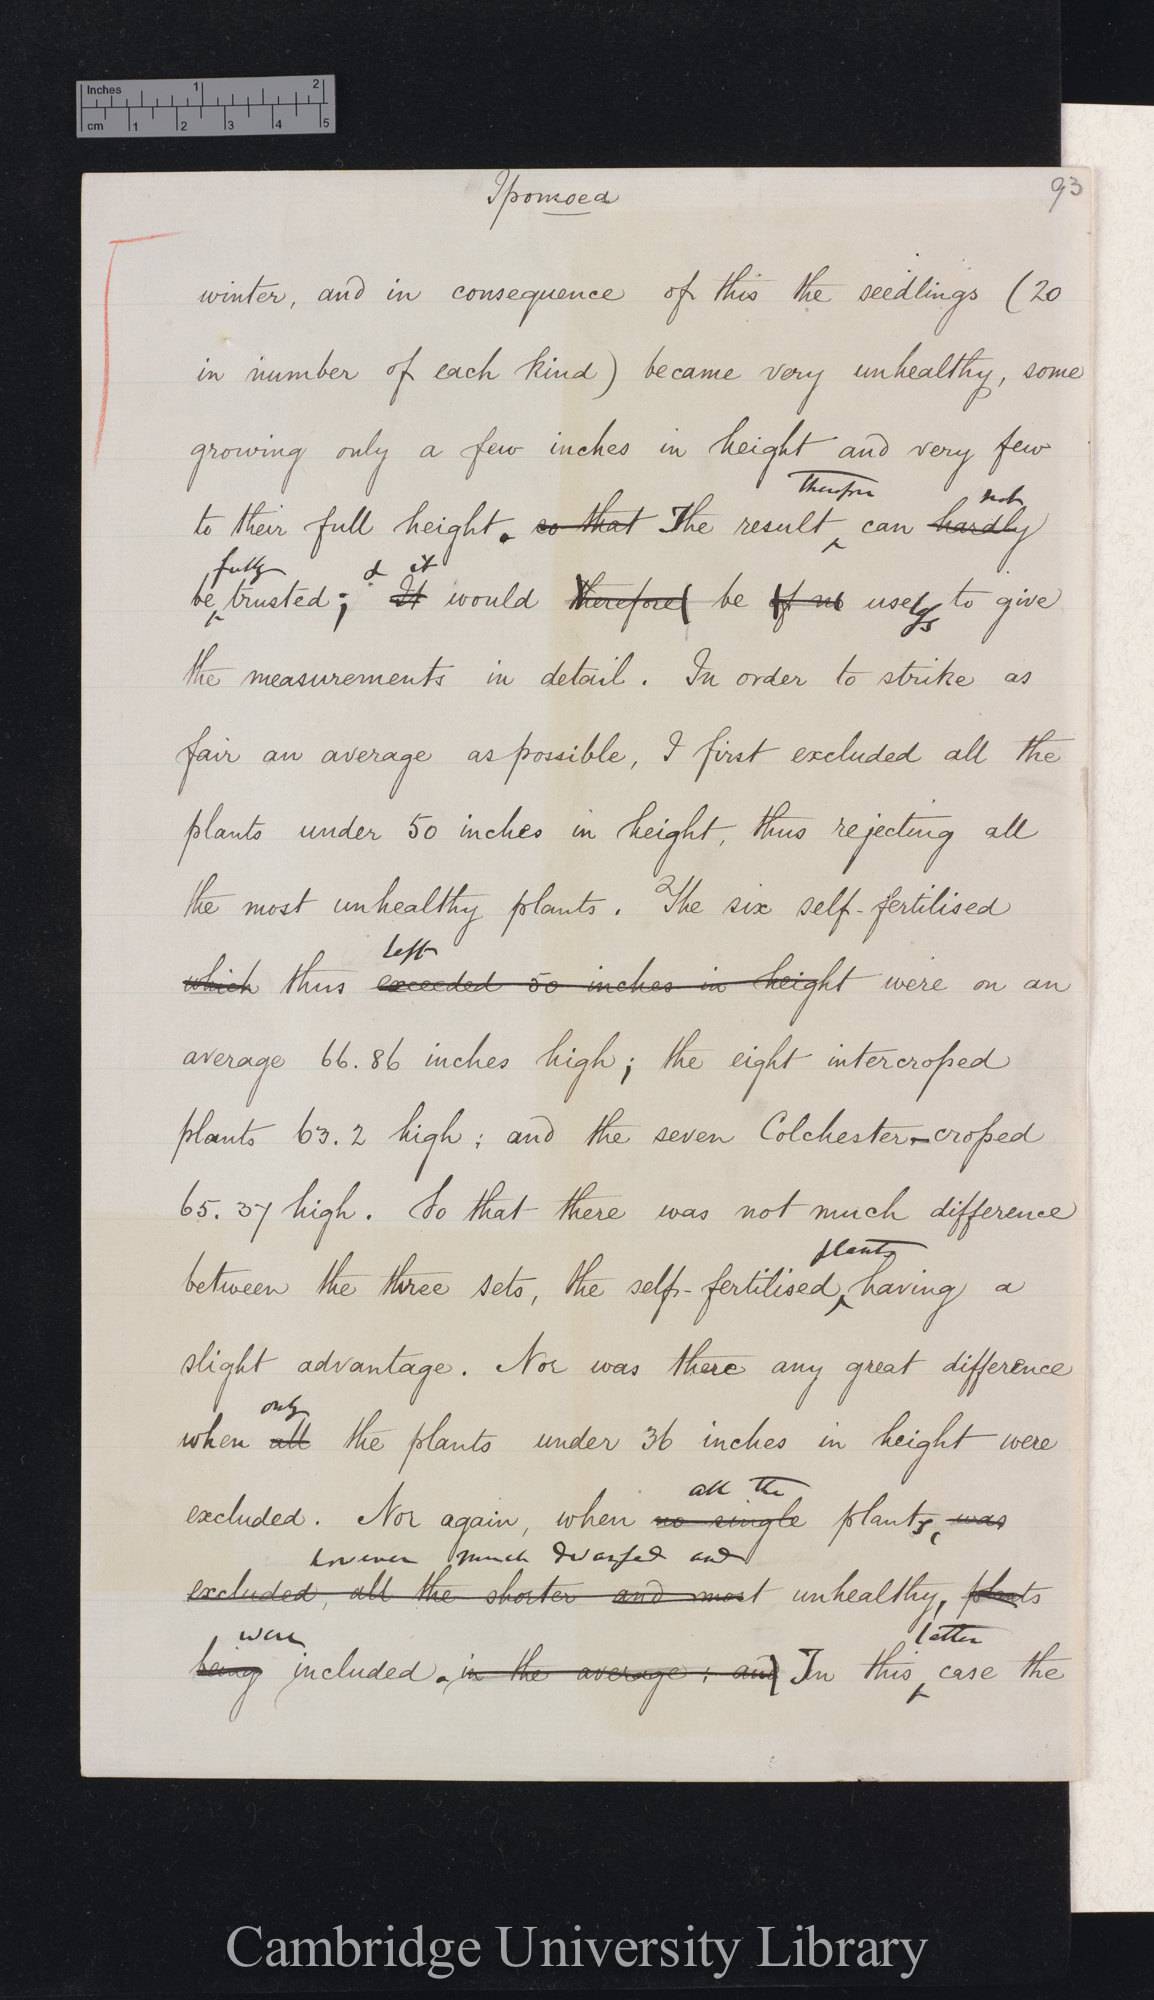 Inches 1 2
cm 1 2 3 4 5
Ipomoea
93
winter, and in consequence of this the seedlings (20
in number of each kind) became very unhealthy, some
growing only a few inches in height and very few
therefore not
to their full height. so that The result can hardly
fully & it
be trusted; It would therefore be of no useless to give
the measurements in detail. In order to strike as
fair an average as possible, I first excluded all the
plants under 50 inches in height, thus rejecting all
the most unhealthy plants. The six self-fertilised
left
which thus exceeded 50 inches in height were on an
average 66.86 inches high; the eight intercrossed
plants 63.2 high; and the seven Colchester-crossed
65.37 high. So that there was not much difference
plants
between the three sets, the self-fertilised, having a
slight advantage. Nor was there any great difference
only
when all the plants under 36 inches in height were
all the
excluded. Nor again, when no single plants, was
however much dwarfed and
excluded, all the shorter and most unhealthy, plants
were latter
being included. in the average; and In this case the
Cambridge University Library